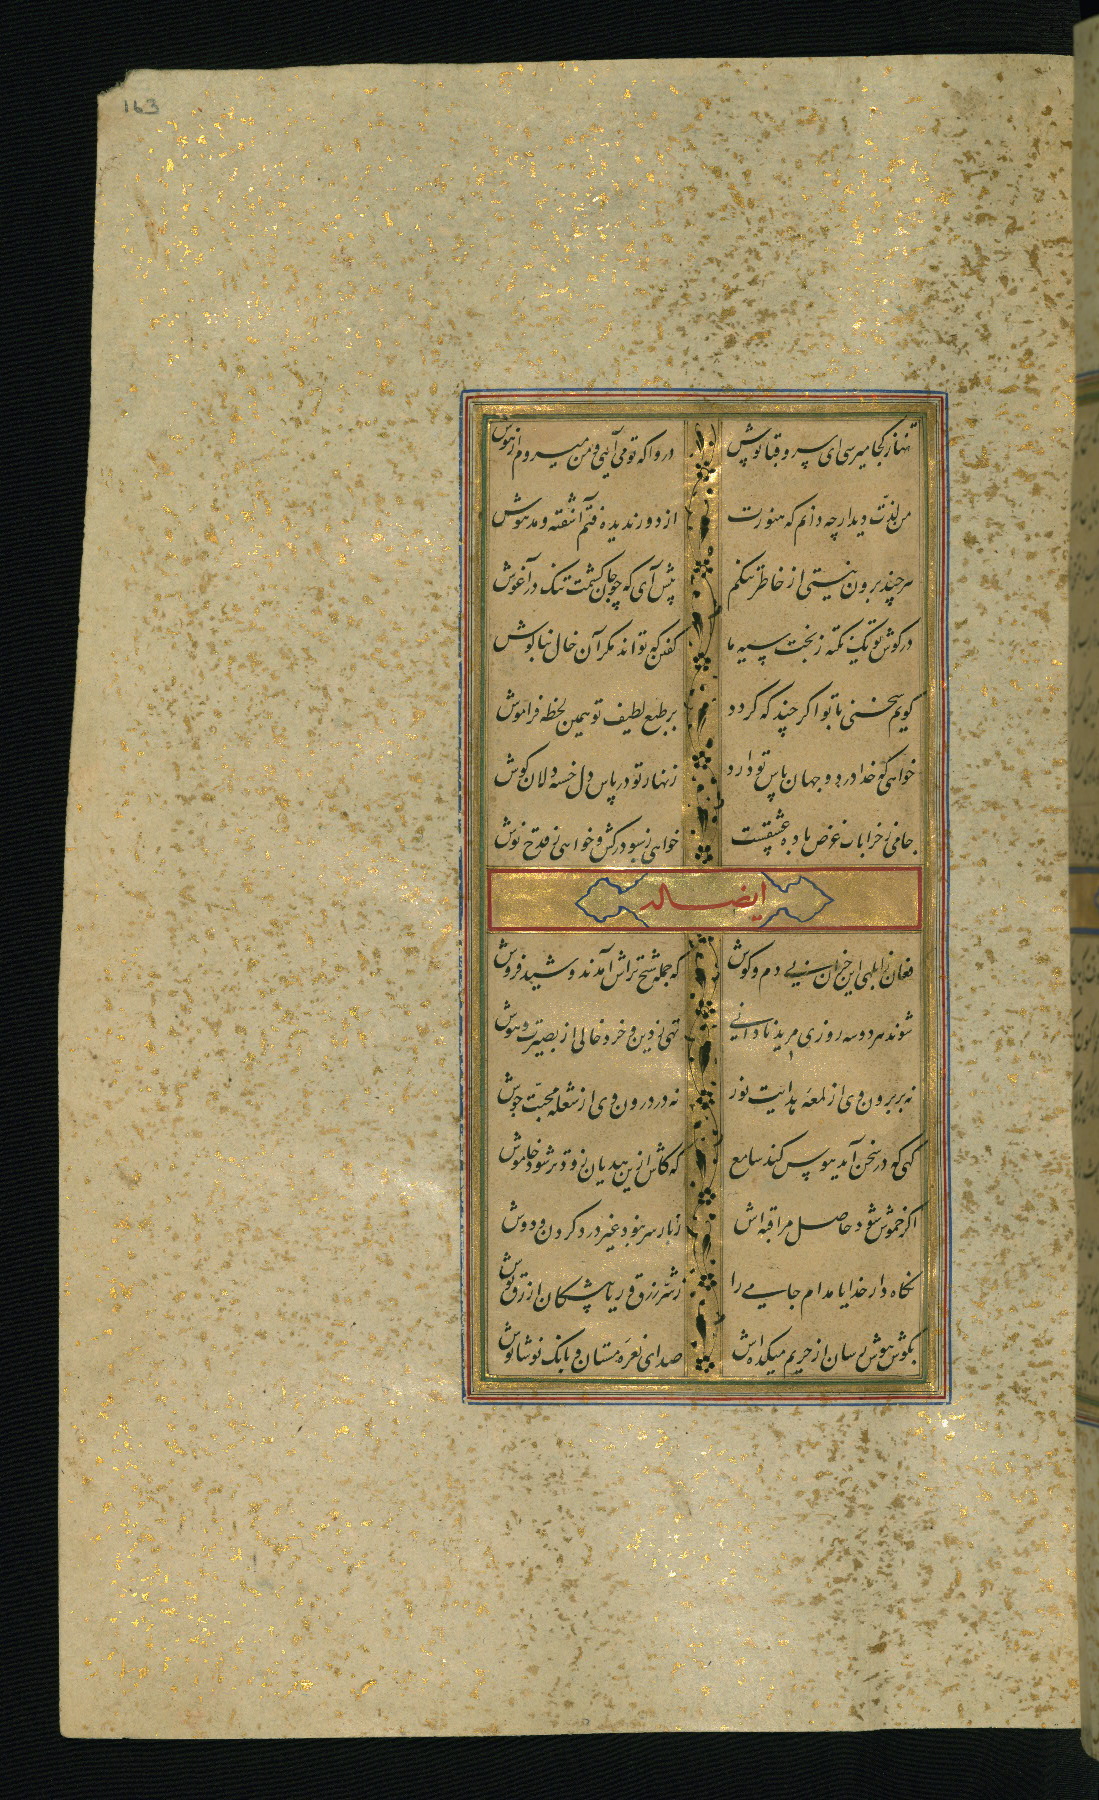 163
تنها ز کجا میرسی ای سرو قباپوش دروا که تو می آیی و من میروم از هوش
من لذت دیدار چه دانم که هنوزت از دور ندیده فتم آشفته و مدهوش
هر چند برون نیستی از خاطر تنگم پیش آی که چو جان کشمت تنگ در آغوش
در گوش تو یک نکته ز بخت سیه ما گفتن که تواند مگر آن خال بناگوش
گویم سخنی با تو اگر چند که گردد بر طبع لطیف تو همین لحظه فراموش
خواهی که خدا در دو جهان پاس تو دارد زنهار تو در پاس دل خسته دلان کوش
جامی ز خرابات غرض باده عشقست خواهی ز سبو درکش و خواهی ز قدح نوش
ایضا له
فغان ز ابلهی این خران بی دم و گوش که جمله شیخ تراش آمدند و شید فروش
شوند هر دو سه روزی مرید نادانی تهی ز دین و خرد خالی از بصیرت و هوش
نه بر برون وی از لمعه هدایت نور نه در درون وی از شعله محبت جوش
گهی که در سخن آید هوس کند سامع که کاش ازین هذیان زودتر شود خاموش
اگر خموش شود حاصل مراقبه اش ز بار سر نبود غیر درد گردن و دوش
نگاه دار خدایا مدام جامی را ز شر زرق و ریا پیشگان ازرق پوش
بگوش هوش رسان از حریم میکده اش صدای نعره مستان و بانگ نوشانوش